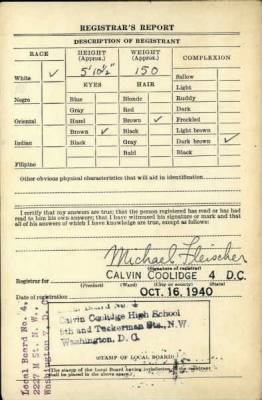 REGISTRAR'S REPORT
DESCRIPTION OF REGISTRANT
RACE HEIGHT (Approx.) WEIGHT (Approx.) COMPLEXION
White ✓ 5' 10½" 150 Sallow
EYES HAIR Light
Negro Blue Blonde Ruddy
Gray Red Dark
Oriental Hazel Brown ✓ Freckled
Brown ✓ Black Light brown
Indian Black Gray Dark brown ✓
Bald Black
Filipino
Other obvious physical characteristics that will aid in identification
I certify that my answers are true; that the person registered has read or has had
read to him his own answers; that I have witnessed his signature or mark and that
all of his answers of which I have knowledge are true, except as follows:
Michael Fleischer
(Signature of registrar)
Registrar for CALVIN COOLIDGE 4 D.C.
(Precinct) (Ward) (City or county) (State)
Date of registration OCT. 16, 1940
Board No. 4
Calvin Coolidge High School
5th and Tuckerman Sts., N.W.
Washington, D. C.
(STAMP OF LOCAL BOARD)
The stamp of the Local Board having jurisdiction of the registrant
shall be placed in the above space.
Local Board No. 4,
2227 M St. N. W.,
Washington, D. C.